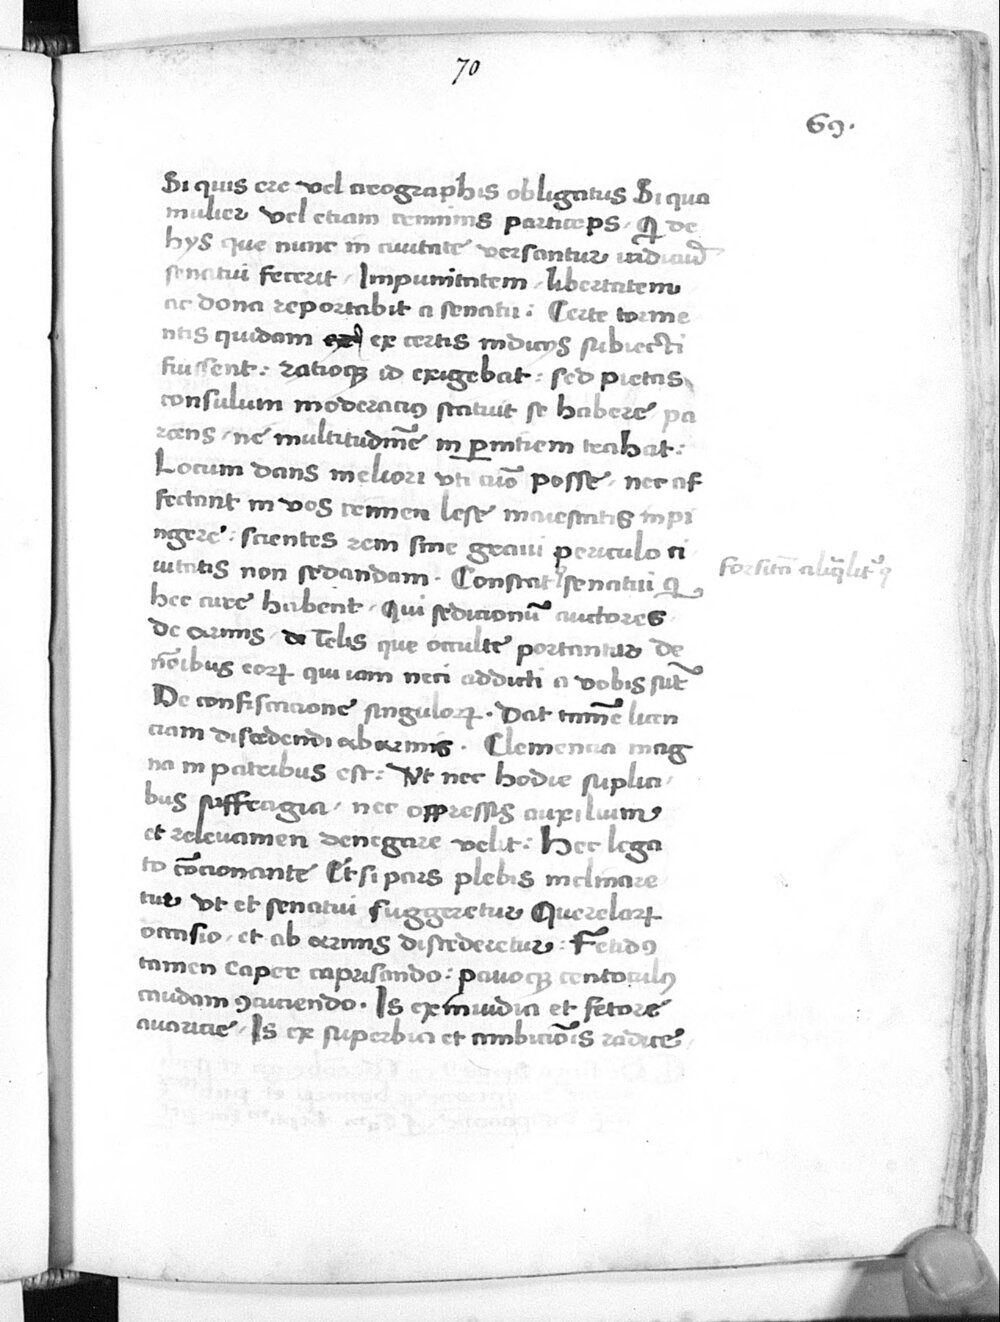 70
69.
Si quis ere vel cirographis obligatus Si qua
mulier vel etiam criminis particeps / Qͥ de
hys que nunc in civitate versantur indiciuȝ
senatui fecerit / Impunitatem / libertatem
ac dona reportabit a senatu : Certe torme
ntis quidam ex certis indicys subiecti
fuissent : ratioqȝ id exigebat : sed pietas
consulum moderatiꝰ statuit se habere pa
rcens / ne multitudinē in ꝑnitiem trahat :
Locum dans meliori uti aīo posse / nec af
fectant in vos crimen lese maiestatis inpi
ngere : scientes rem sine gravi periculo ci
uitatis non sedandam . Constat senatui
hec cure habent / Qui sedicionū auctores
de armis / de Telis que occulte portantur de
nōibus eoꝝ qui iam neci addicti a vobis sūt
De confiscacione singuloꝝ . Dat tamē licen
ciam discedendi ab armis . Clemencia mag
na in patribus est : Vt nec hodie suplici
bus suffragia / nec oppressis auxilium
et relevamen denegare velit : Hec lega
to cōcionante Et si pars plebis inclinare
tur Vt et senatui suggeretur Quereları
occasio / et ab armis discederetur : Fetidꝰ
tamen caper caprisando : pavoqȝ centoculꝰ
caudam ꝯciuendo . Is ex invidia et fetore
avaricie / Is ex superbia et ambiciōis radice /
forsitā